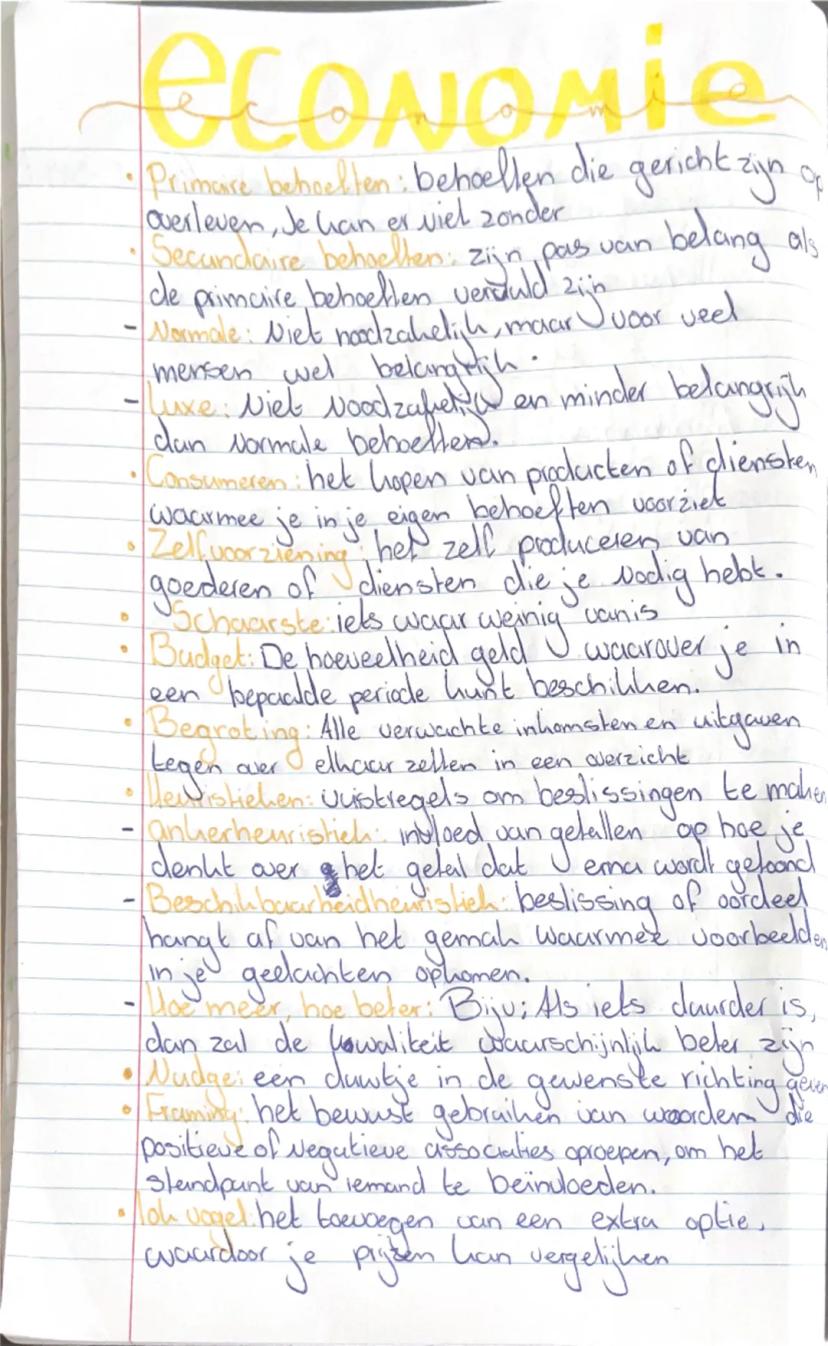 economie
economie
• Primaire behoeften: behoeften die gericht zijn op
overleven, Je kan er niet zonder
• Secundaire behoeften: zijn pas van belang als
de primaire behoeften vervuld zijn
- Normale: Niet noodzakelijk, maar voor veel
mensen wel belangrijk.
- Luxe: Niet Noodzakelijk en minder belangrijk
dan normale behoeften.
• Consumeren: het kopen van producten of diensten
waarmee je in je eigen behoeften voorziet
• Zelfvoorziening: het zelf produceren van
goederen of diensten die je nodig hebt.
• Schaarste: iets waar weinig van is
• Budget: De hoeveelheid geld waarover je in
een bepaalde periode kunt beschikken.
• Begroting: Alle verwachte inkomsten en uitgaven
tegen over elkaar zetten in een overzicht
• Heuristieken: vuistregels om beslissingen te maken
- ankerheuristiek: invloed van getallen op hoe je
denkt over het getal dat erna wordt getoond
- Beschikbaarheidheuristiek: beslissing of oordeel
hangt af van het gemak waarmee voorbeelden
in je gedachten opkomen.
- Hoe meer, hoe beter: Bijv; Als iets duurder is,
dan zal de kwaliteit waarschijnlijk beter zijn
• Nudge: een duwtje in de gewenste richting geven
• Framing: het bewust gebruiken van woorden die
positieve of negatieve associaties oproepen, om het
standpunt van iemand te beïnvloeden.
• lok vogel: het toevoegen van een extra optie,
waardoor je prijzen kan vergelijken